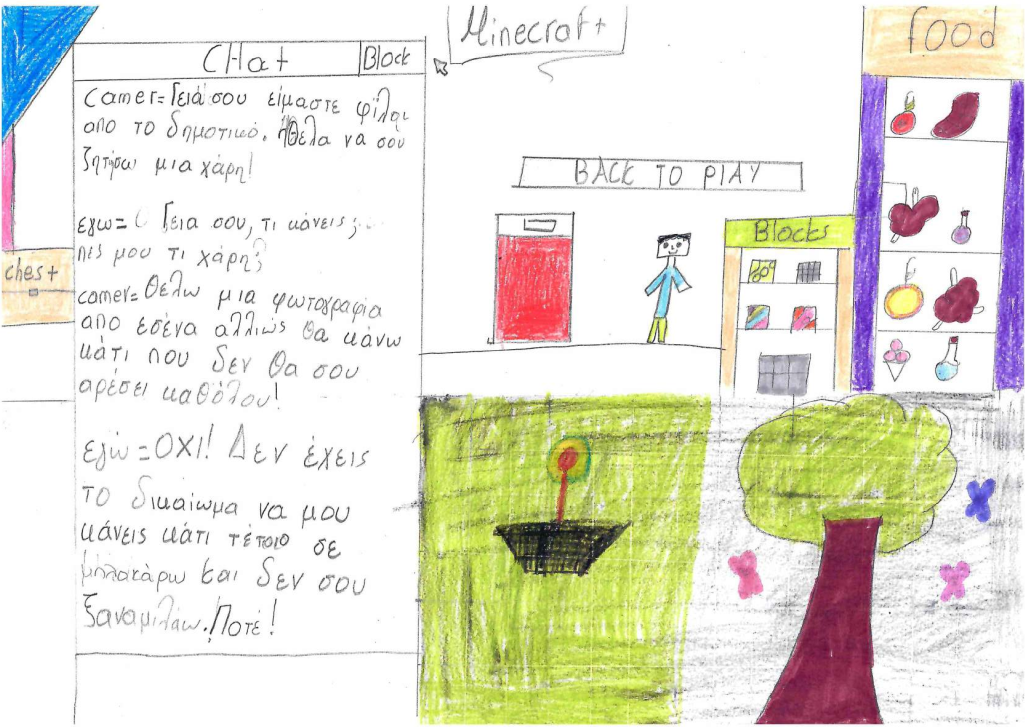 Minecraft
food
CHat
Block
camer=Γειά σου είμαστε φίλοι
από το δημοτικό. ήθελα να σου
ζητήσω μια χάρη!
εγω= Γεια σου, τι κάνεις;
πές μου τι χάρη;
camer=Θέλω μια φωτογραφία
από εσένα αλλιώς θα κάνω
κάτι που δεν θα σου
αρέσει καθόλου!
εγώ=ΟΧΙ! Δεν έχεις
το δικαίωμα να μου
κάνεις κάτι τέτοιο σε
μπλοκάρω και δεν σου
ξαναμιλάω. Ποτέ!
BACK TO PlAY
Blocks
chest